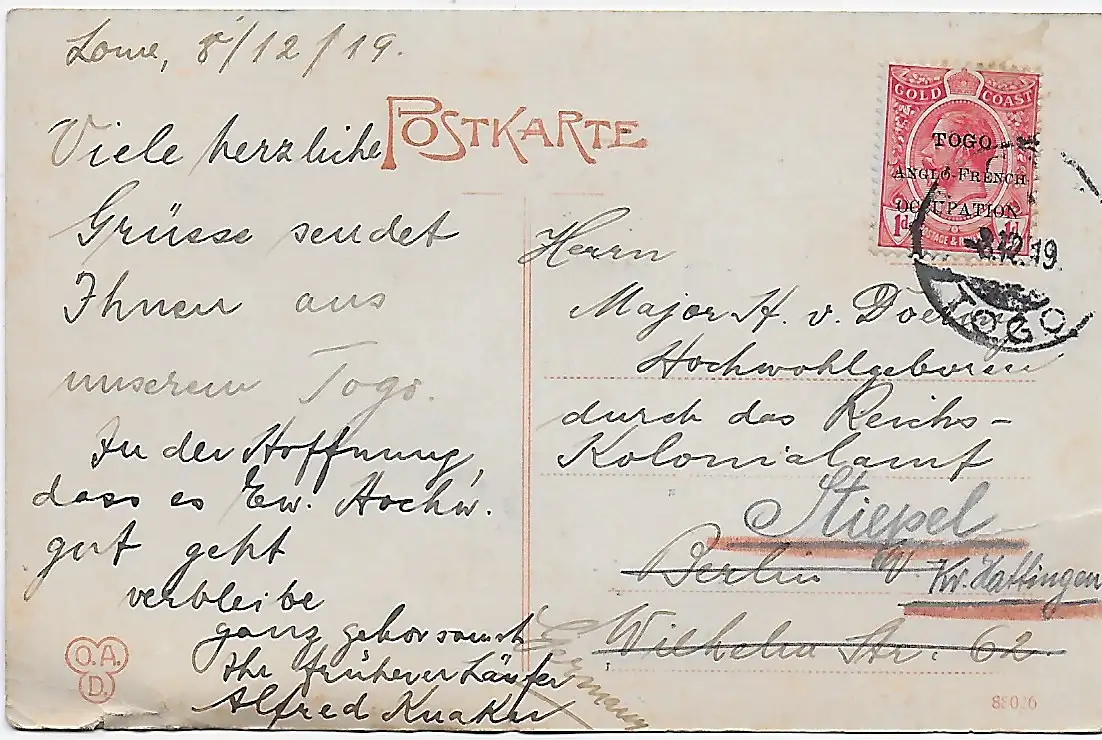 Lome, 8/12/19.
Viele herzliche
Grüsse sendet
Ihnen aus
unserem Togo.
In der Hoffnung,
dass es Ew. Hochw.
gut geht
verbleibe
ganz gehorsamst
Ihr früherer Läufer
Alfred
POSTKARTE
GOLD COAST
TOGO
ANGLO-FRENCH
OCCUPATION
1d 1d
POSTAGE &
8.12.19
TOGO
Herrn
Major H. v.
Hochwohlgeboren
durch das Reichs-
Kolonialamt
Stiepel
Berlin W. Kr. Hattingen
Wilhelm Str. 62
Germany
O.A.
D.